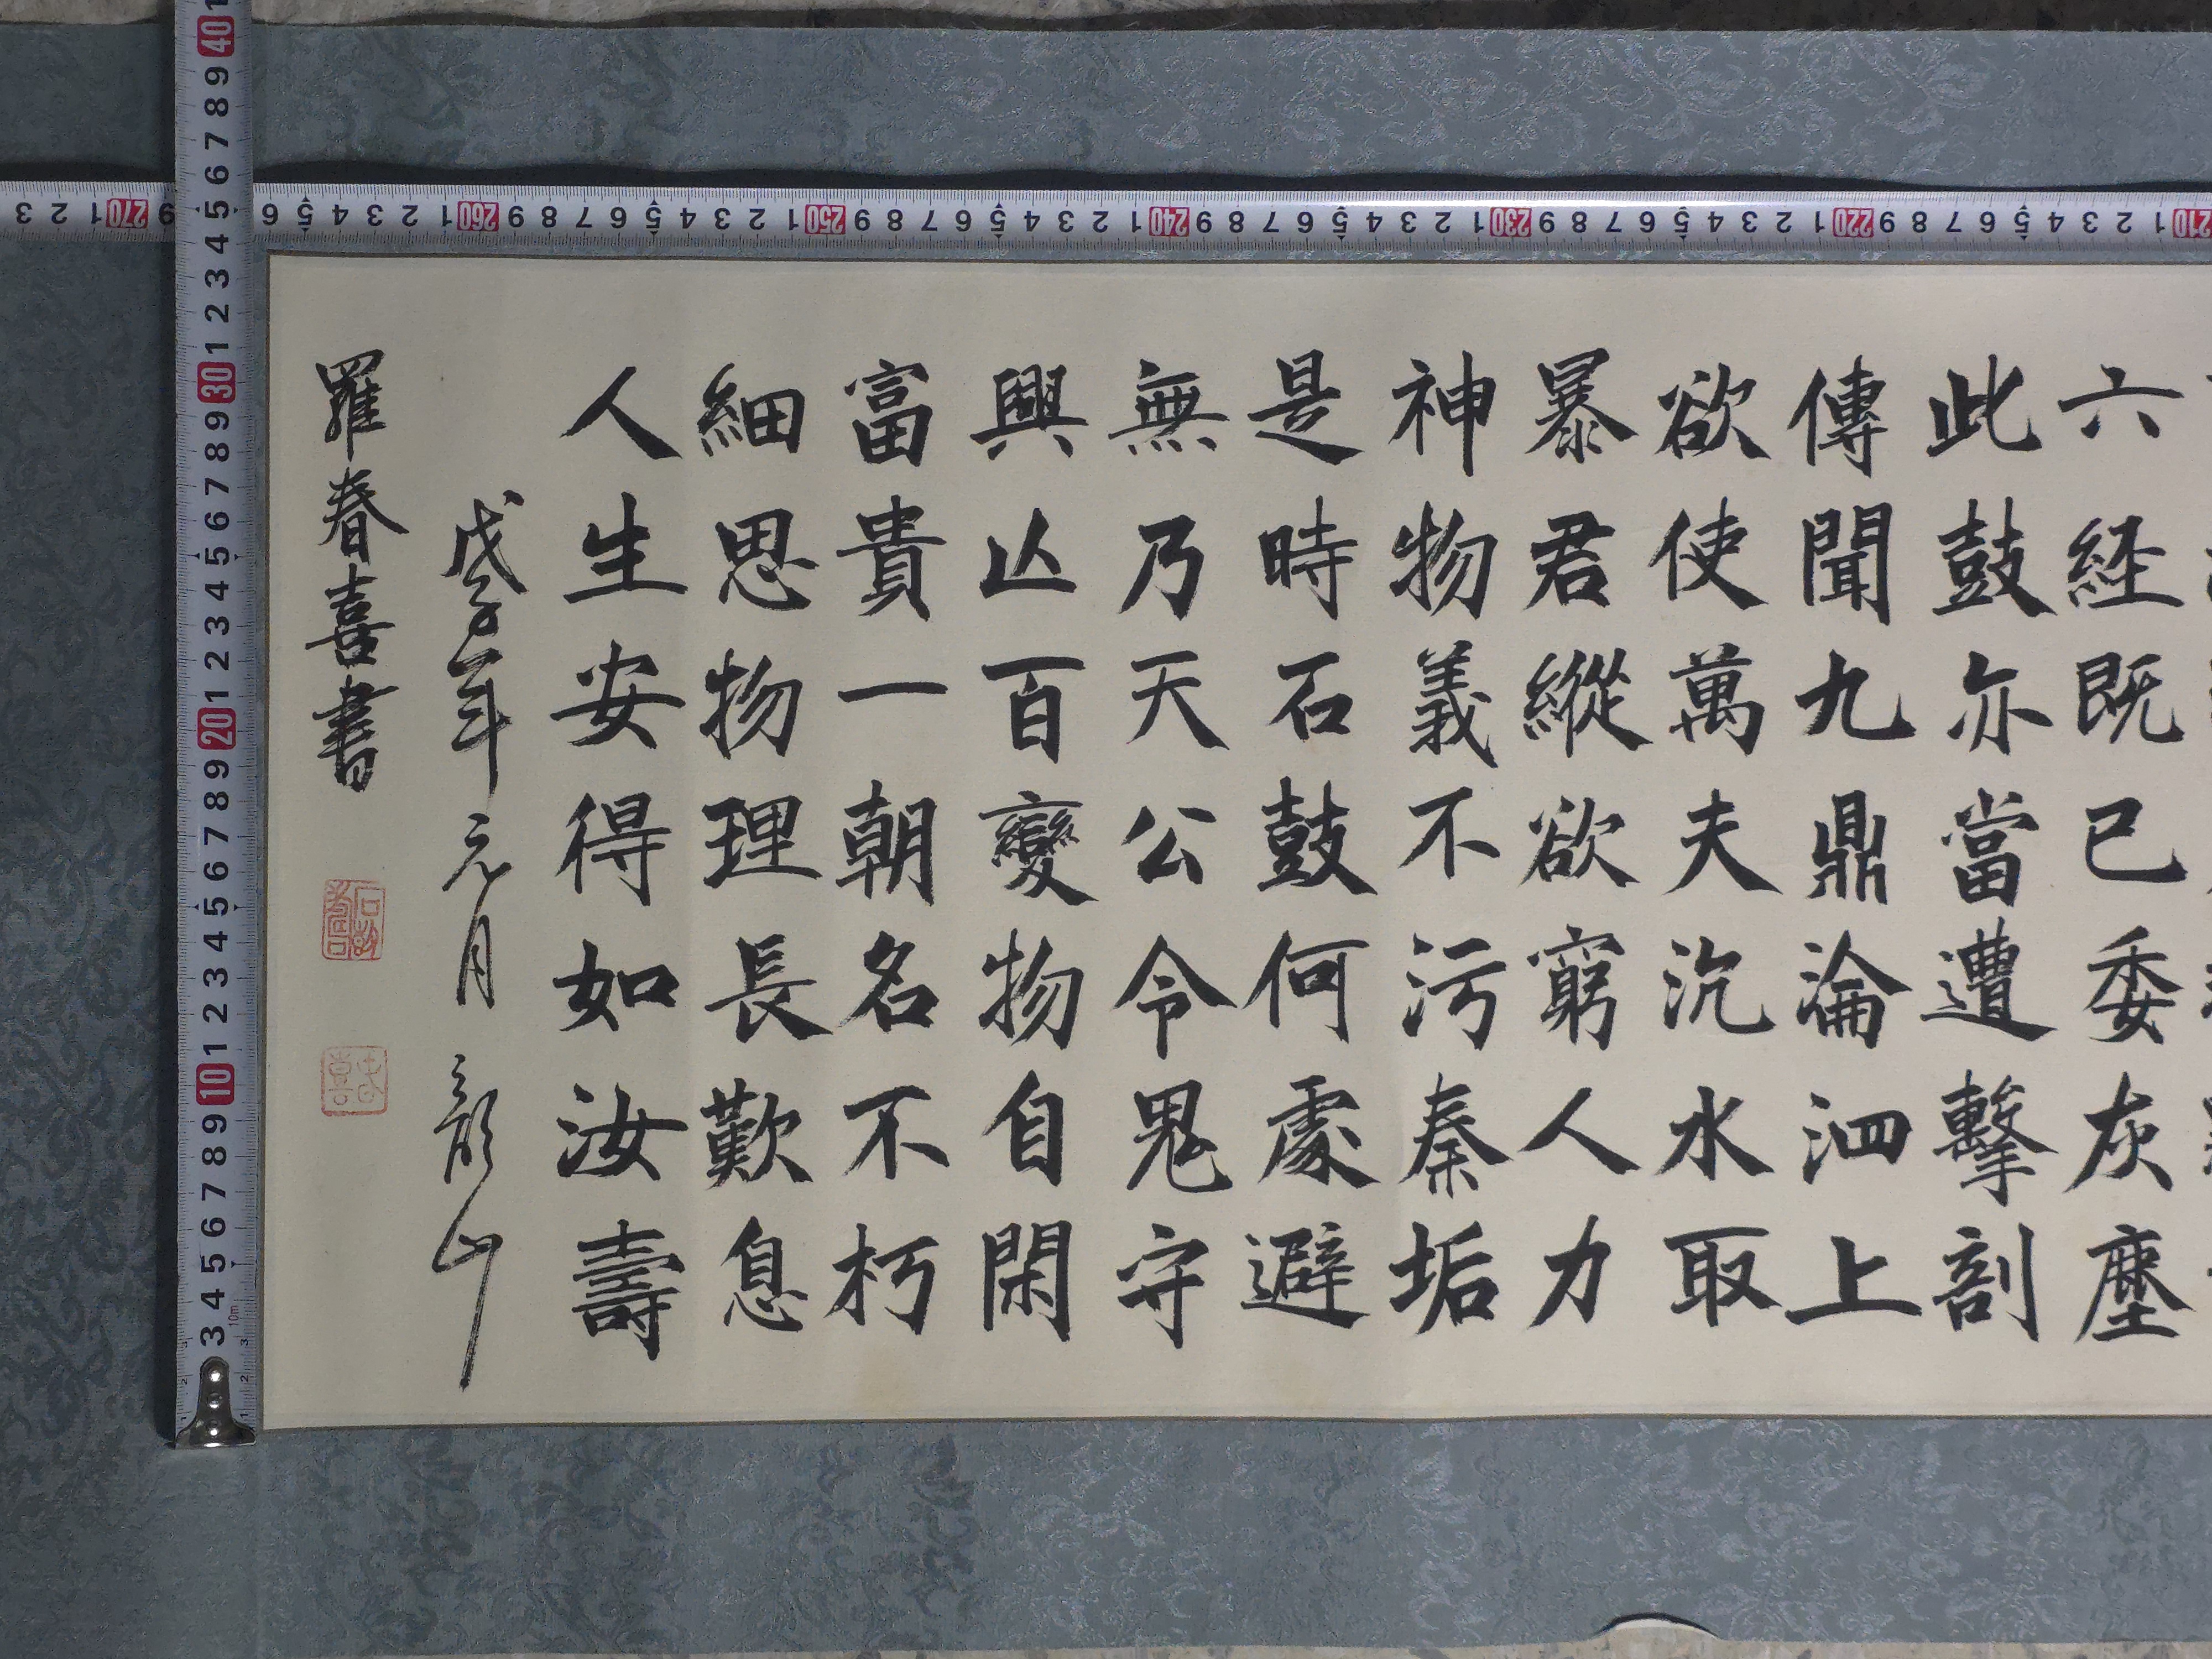 六経既已委灰塵
此鼓亦當遭擊剖
傳聞九鼎淪泗上
欲使萬夫沉水取
暴君縱欲窮人力
神物義不污秦垢
是時石鼓何處避
無乃天公令鬼守
興亾百變物自閑
富貴一朝名不朽
細思物理長歎息
人生安得如汝壽
戊子年元月 龍山
羅春喜書